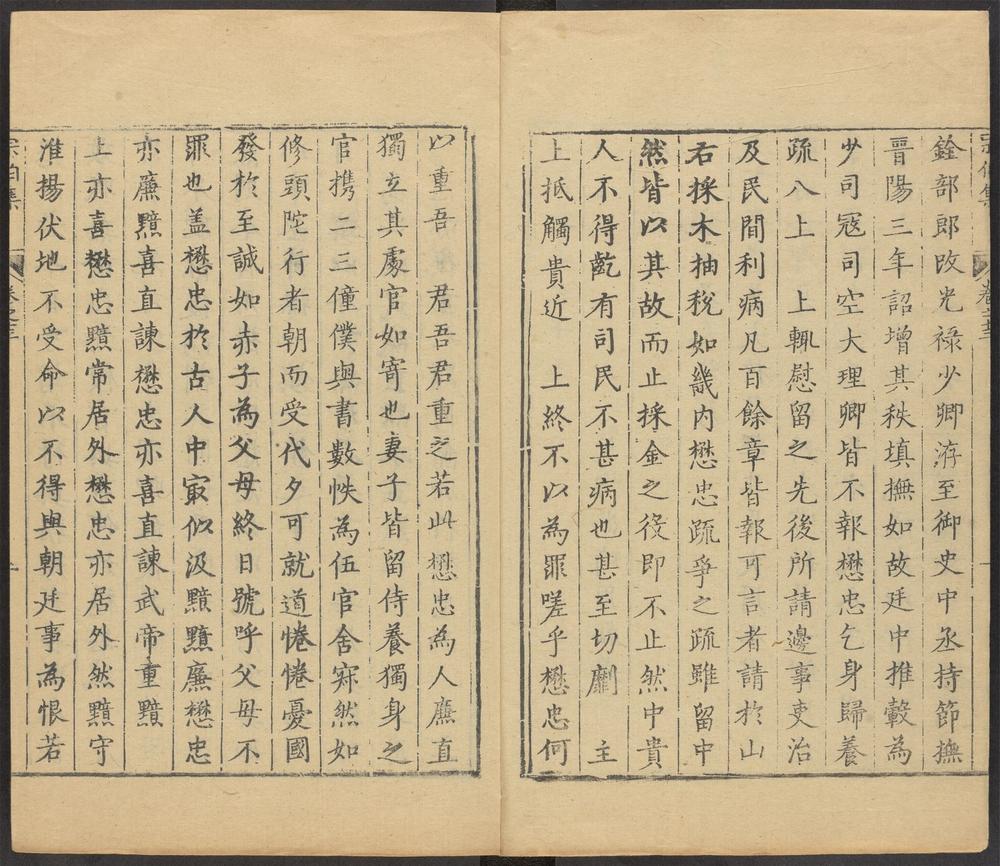 銓部郎改光禄少卿洊至御史中丞持節撫
晉陽三年詔增其秩填撫如故廷中推轂為
少司冦司空大理卿皆不報懋忠乞身歸養
疏八上　上輒慰留之先後所請邊事吏治
及民間利病凡百餘章皆報可言者請於山
右採木抽稅如畿内懋忠疏爭之疏雖留中
然皆以其故而止採金之役即不止然中貴
人不得齕有司民不甚病也甚至切劘　主
上抵觸貴近　上終不以為罪嗟乎懋忠何
以重吾　君吾君重之若此懋忠為人廉直
獨立其處官如寄也妻子皆留侍養獨身之
官携二三僮僕與書數帙為伍官舍寂然如
修頭陀行者朝而受代夕可就道惓惓憂國
發於至誠如赤子為父母終日號呼父母不
罪也盖懋忠於古人中㝡似汲黯黯廉懋忠
亦廉黯喜直諫懋忠亦喜直諫武帝重黯
上亦喜懋忠黯常居外懋忠亦居外然黯守
淮揚伏地不受命以不得與朝廷事為恨若